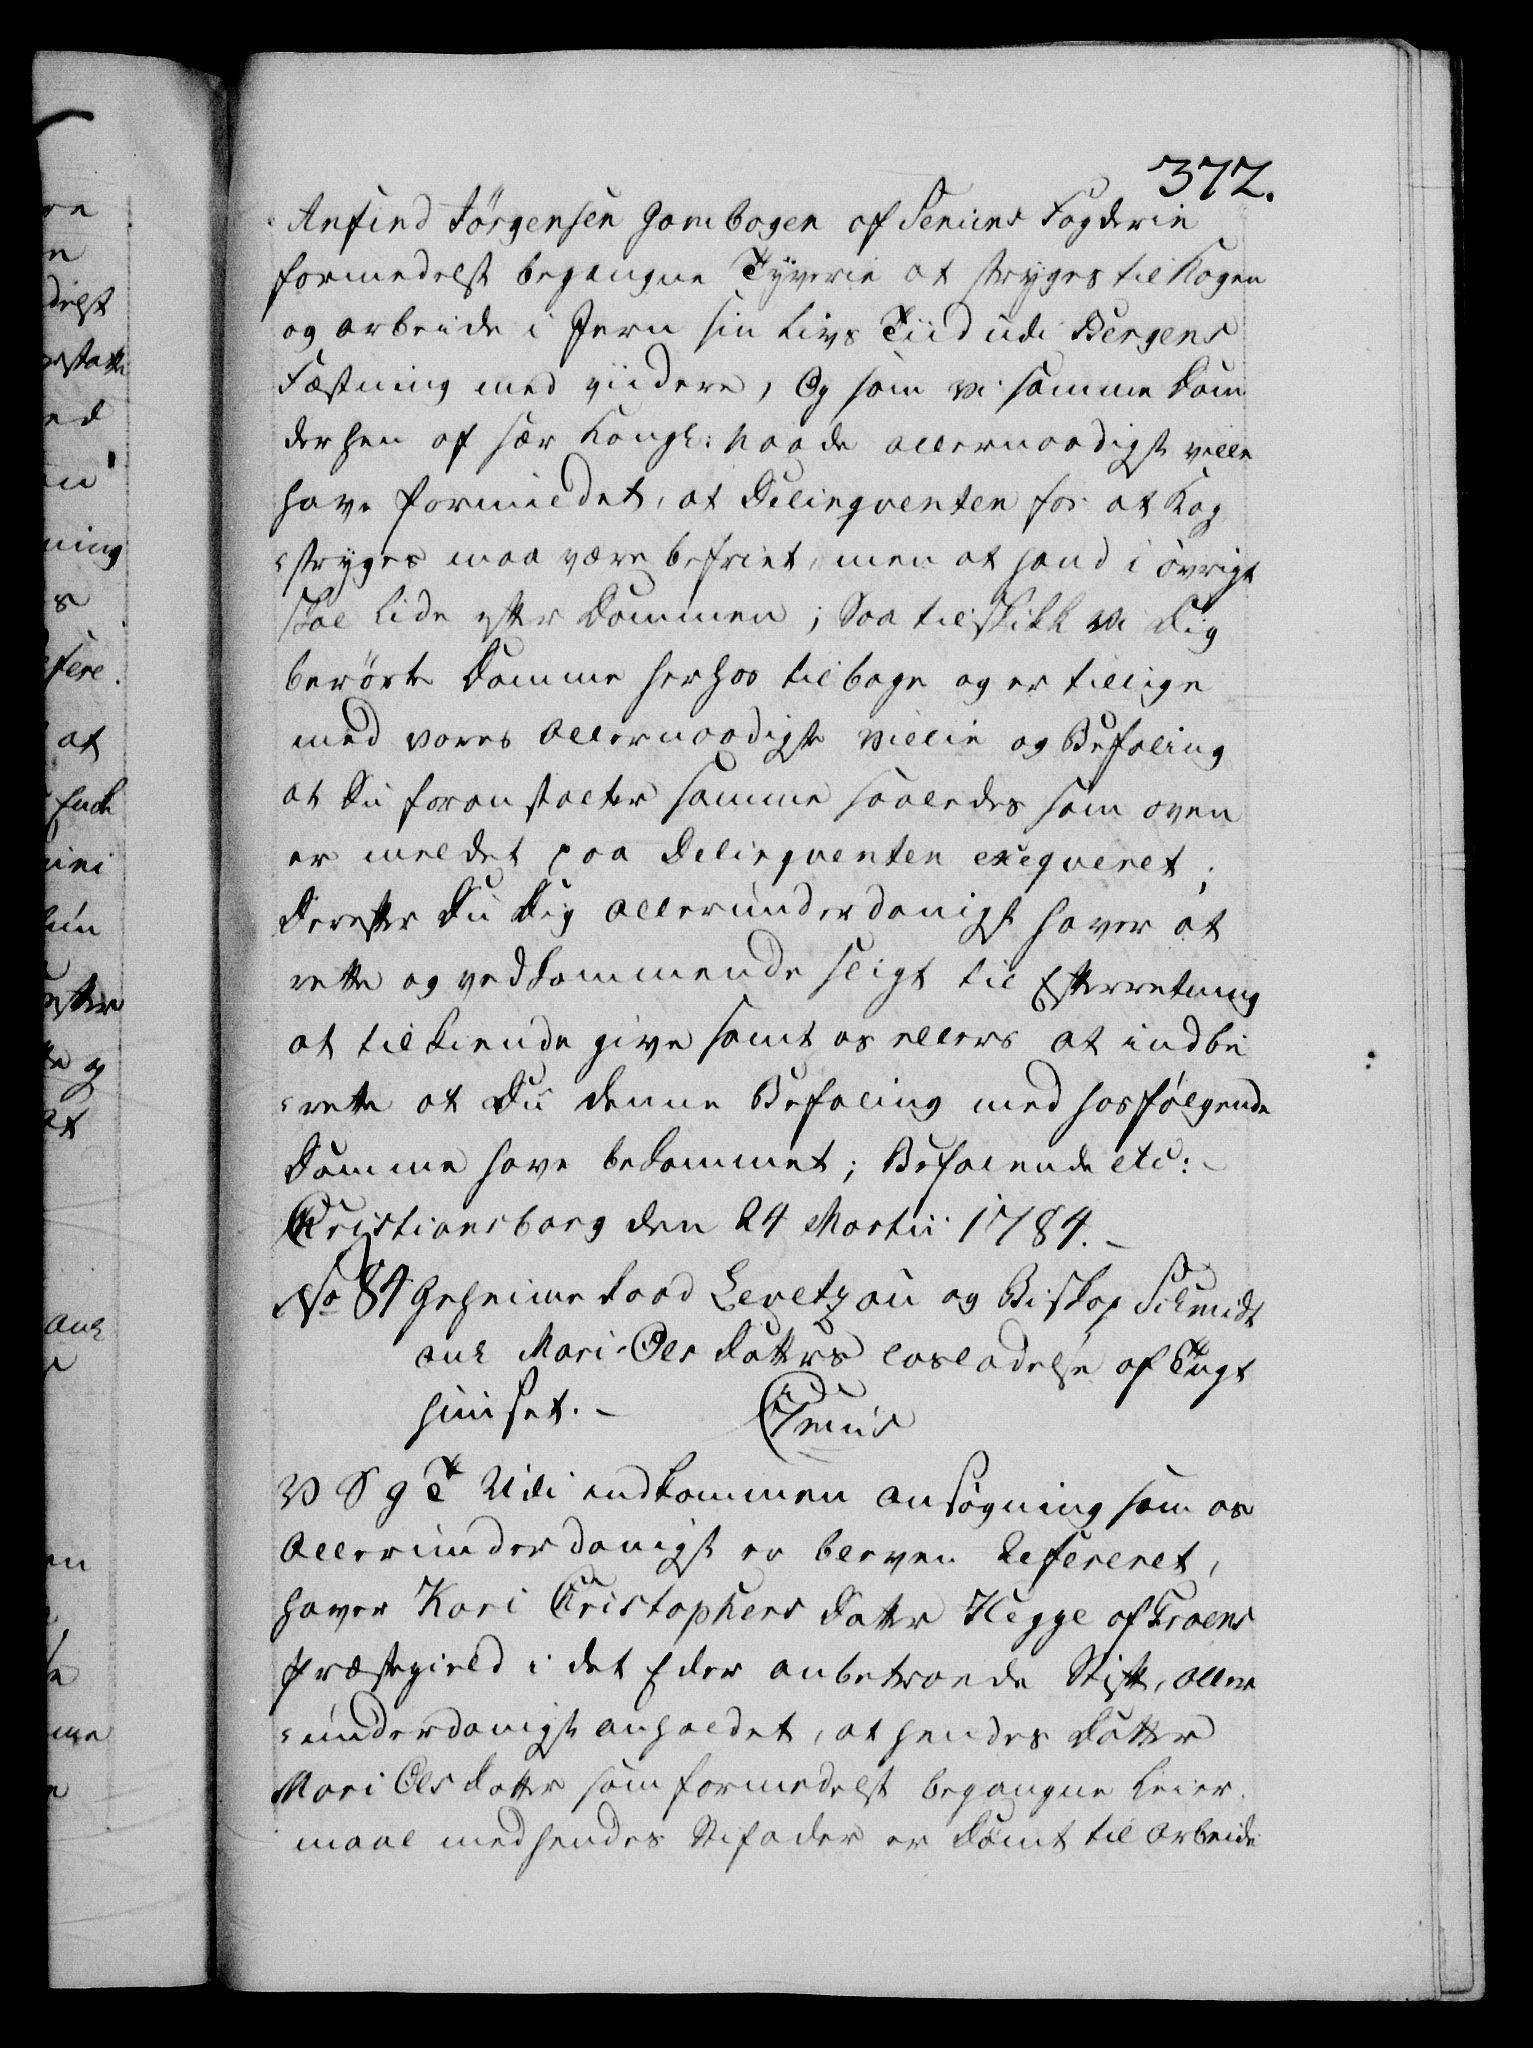 372.
Anfind Jörgensen Gombogen af Seniens Fogderie
formedelst begangne Tÿverie at stryges til Kagen
og arbeide i Jern sin Livs Tiid udi Bergens
Fæstning med viidere, Og som vi samme Dom
derhen af sær Kongl: Naade allernaadigst ville
have formildet, at Delinqventen for at Kag
stryges maa være befriet, men at hand i övrigt
skal lide efter Dommen; Saa tilskikke vi Dig
berörte Domme herhos tilbage og er tillige
med vores allernaadigste villie og Befaling
at Du foranstalter samme saaledes som oven
er meldet paa Delinqventen exeqveret;
Derefter Du Dig allerunderdanigst haver at
rette og vedkommende sligt til Efterretning
at tilkiende give samt os ellers at indbe
rette at Du denne Befaling med hosfölgende
Domme have bekommet; Befalende etc:
Christiansborg den 24 Martii 1784.
No 84 Geheime Raad Levetzau og Biskop Schmidt
ank Mari Ols Datters losladelse af Tugt
huuset.
V S g T Udi indkommen ansögning som os
allerunderdanigst er bleven Refereret,
haver Kari Christophers Datter Hegge af Froens
Præstegield i det Eder anbetroede Stift, aller
underdanigst anholdet, at hendes Datter
Mari Ols Datter som formedelst begangne Leier
maal med hendes Stifader er dömt til Arbeide